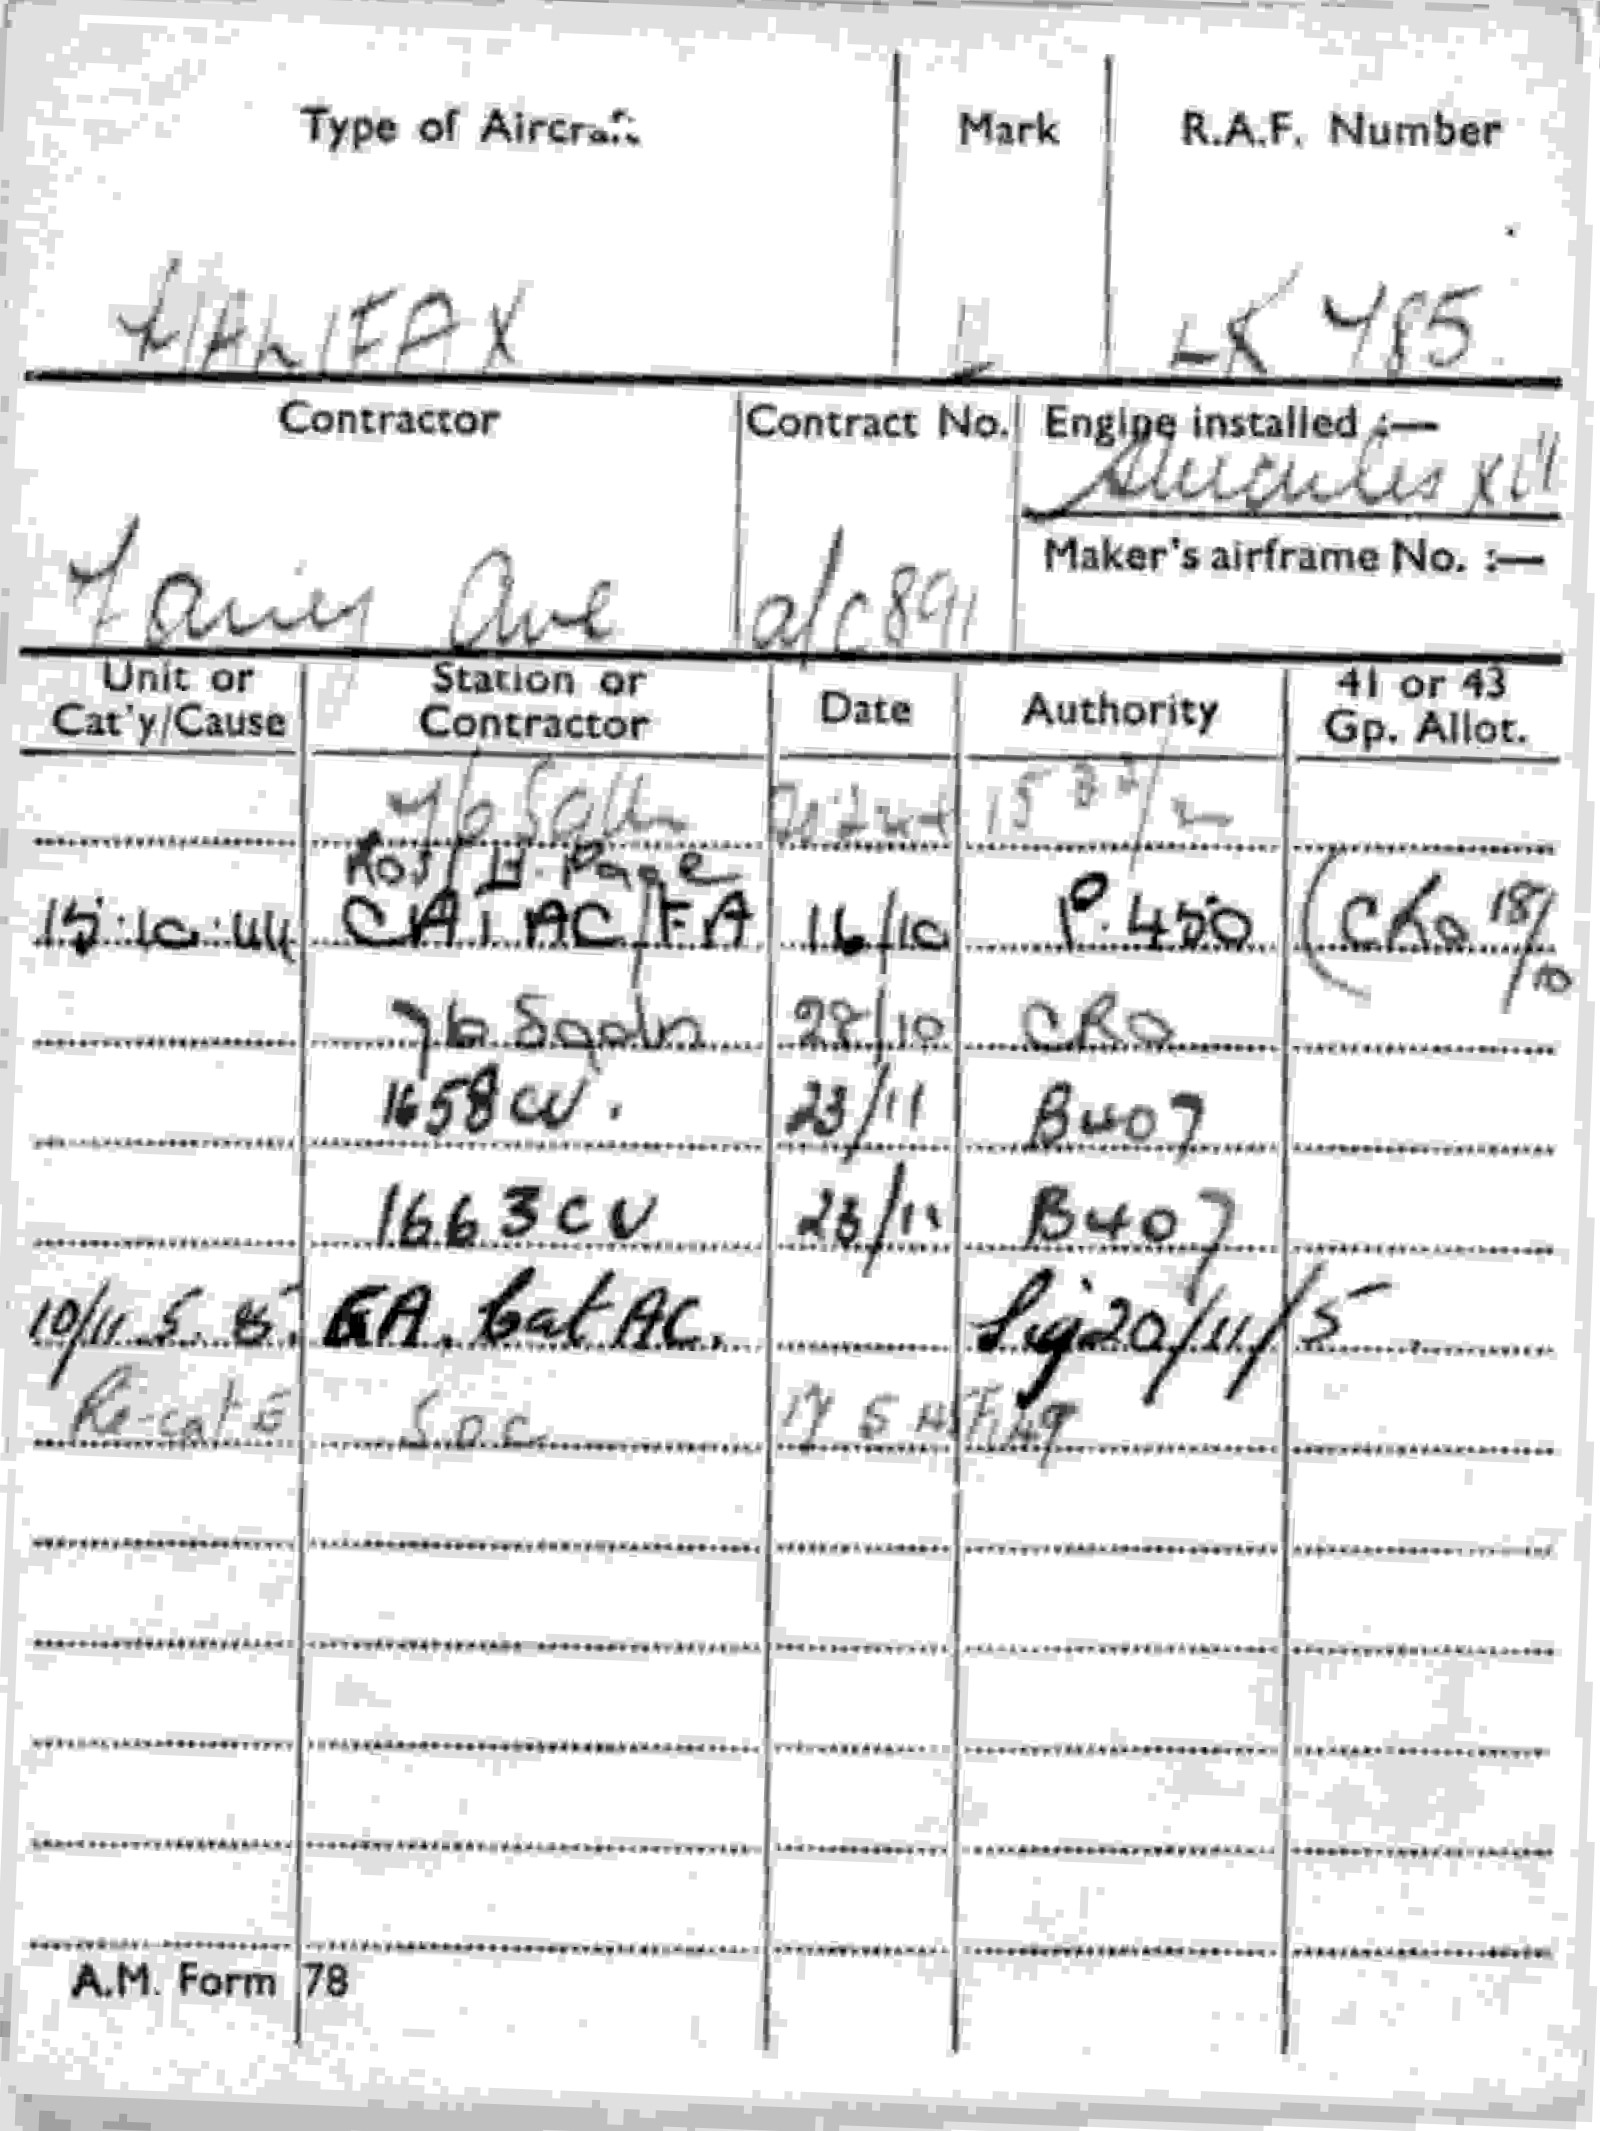 Type of Aircraft Mark R.A.F. Number
HALIFAX LK 785
Contractor Contract No. Engine installed :—
Hercules XVI
Maker's airframe No. :—
Fairey Ave a/c 891
Unit or Cat'y/Cause Station or Contractor Date Authority 41 or 43 Gp. Allot.
76 Sqdn
Ros/ H. Page
15.10.44 CAT AC/FA 16/10 P. 450 (CRO 18/10
76 Sqdn 28/10 CRO
1658 CU. 23/11 B407
1663 CU 23/11 B407
10/11 5. 45. FA. Cat AC. Sig 20/11/5
Re-cat E S.O.C. 17 5 45
A.M. Form 78